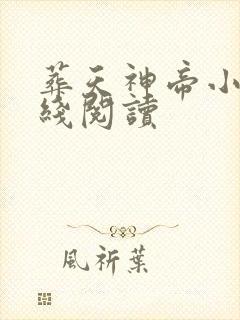 葬天神帝小
綫閱讀
風祈葉